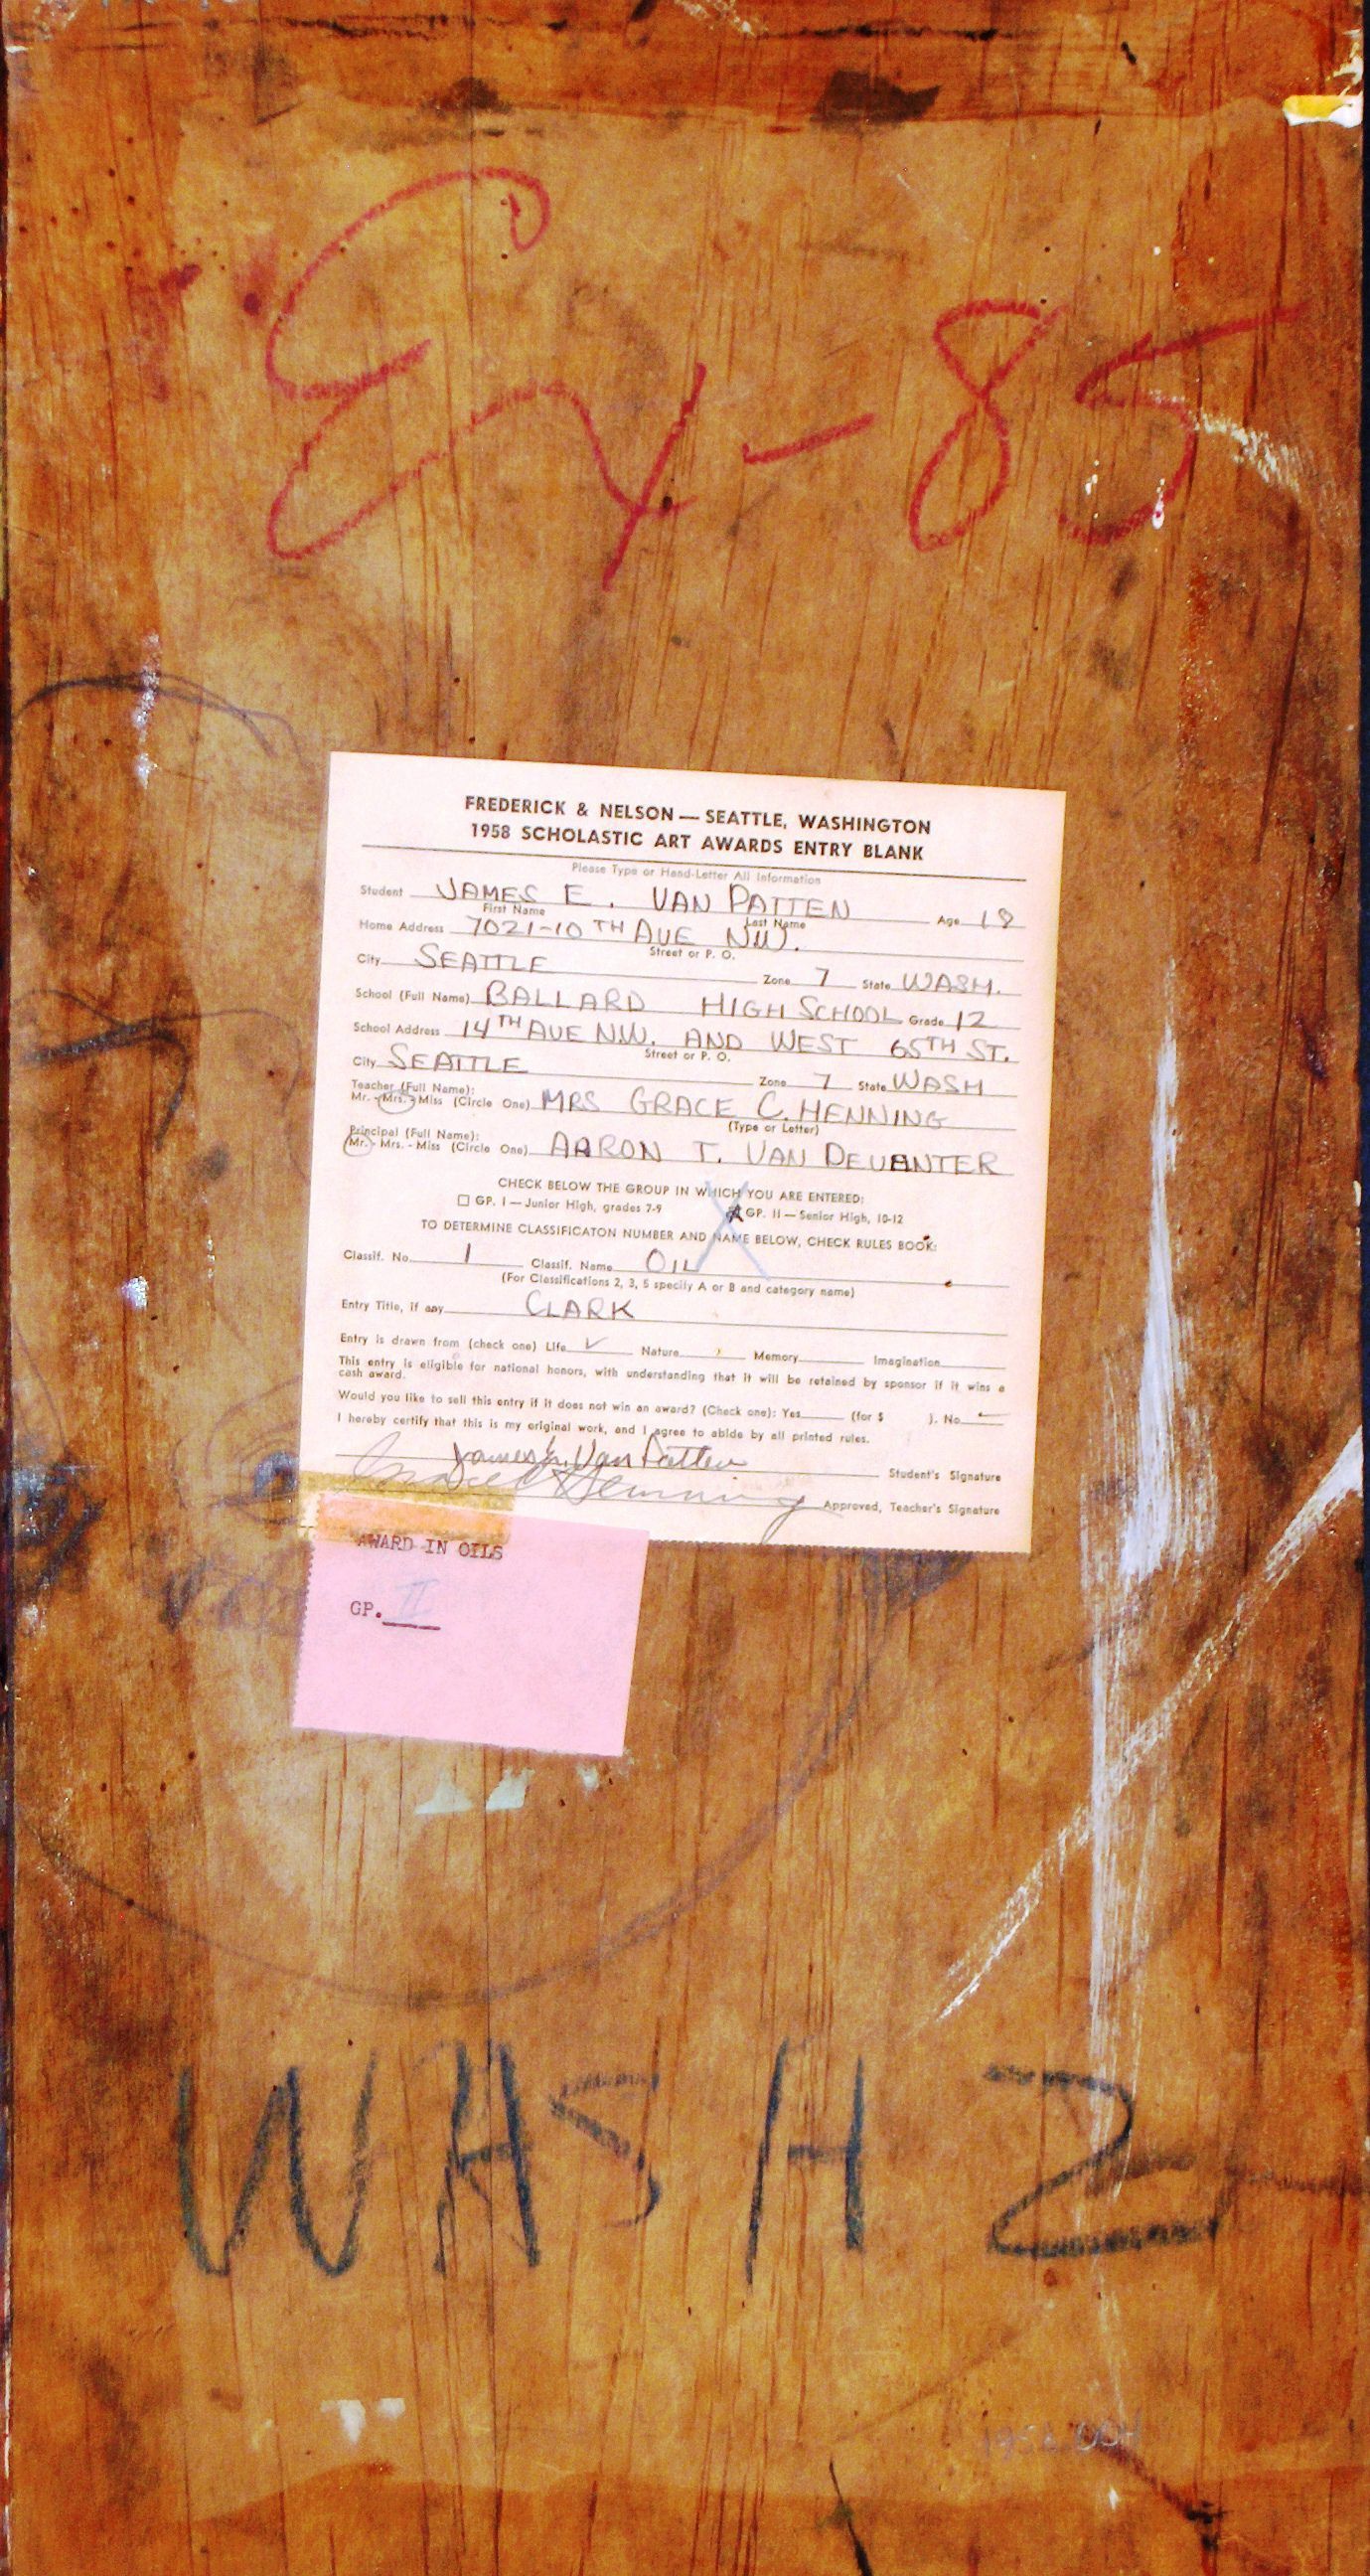 Ex-85
FREDERICK & NELSON — SEATTLE, WASHINGTON
1958 SCHOLASTIC ART AWARDS ENTRY BLANK
Please Type or Hand-Letter All Information
Student JAMES E. VAN PATTEN Age 18
First Name Last Name
Home Address 7021-10TH AVE NW.
Street or P. O.
City SEATTLE Zone 7 State WASH.
School (Full Name) BALLARD HIGH SCHOOL Grade 12
School Address 14TH AVE N.W. AND WEST 65TH ST.
Street or P. O.
City SEATTLE Zone 7 State WASH
Teacher (Full Name):
Mr. - Mrs. - Miss (Circle One) MRS GRACE C. HENNING
(Type or Letter)
Principal (Full Name):
Mr. - Mrs. - Miss (Circle One) AARON T. VAN DEVANTER
CHECK BELOW THE GROUP IN WHICH YOU ARE ENTERED:
GP. I — Junior High, grades 7-9 X GP. II — Senior High, 10-12
TO DETERMINE CLASSIFICATON NUMBER AND NAME BELOW, CHECK RULES BOOK:
Classif. No. 1 Classif. Name OIL
(For Classifications 2, 3, 5 specify A or B and category name)
Entry Title, if any CLARK
Entry is drawn from (check one) Life ✓ Nature Memory Imagination
This entry is eligible for national honors, with understanding that it will be retained by sponsor if it wins a
cash award.
Would you like to sell this entry if it does not win an award? (Check one): Yes (for $ ). No ✓
I hereby certify that this is my original work, and I agree to abide by all printed rules.
James E. Van Patten Student's Signature
Henning Approved, Teacher's Signature
AWARD IN OILS
GP. II
WASH 2